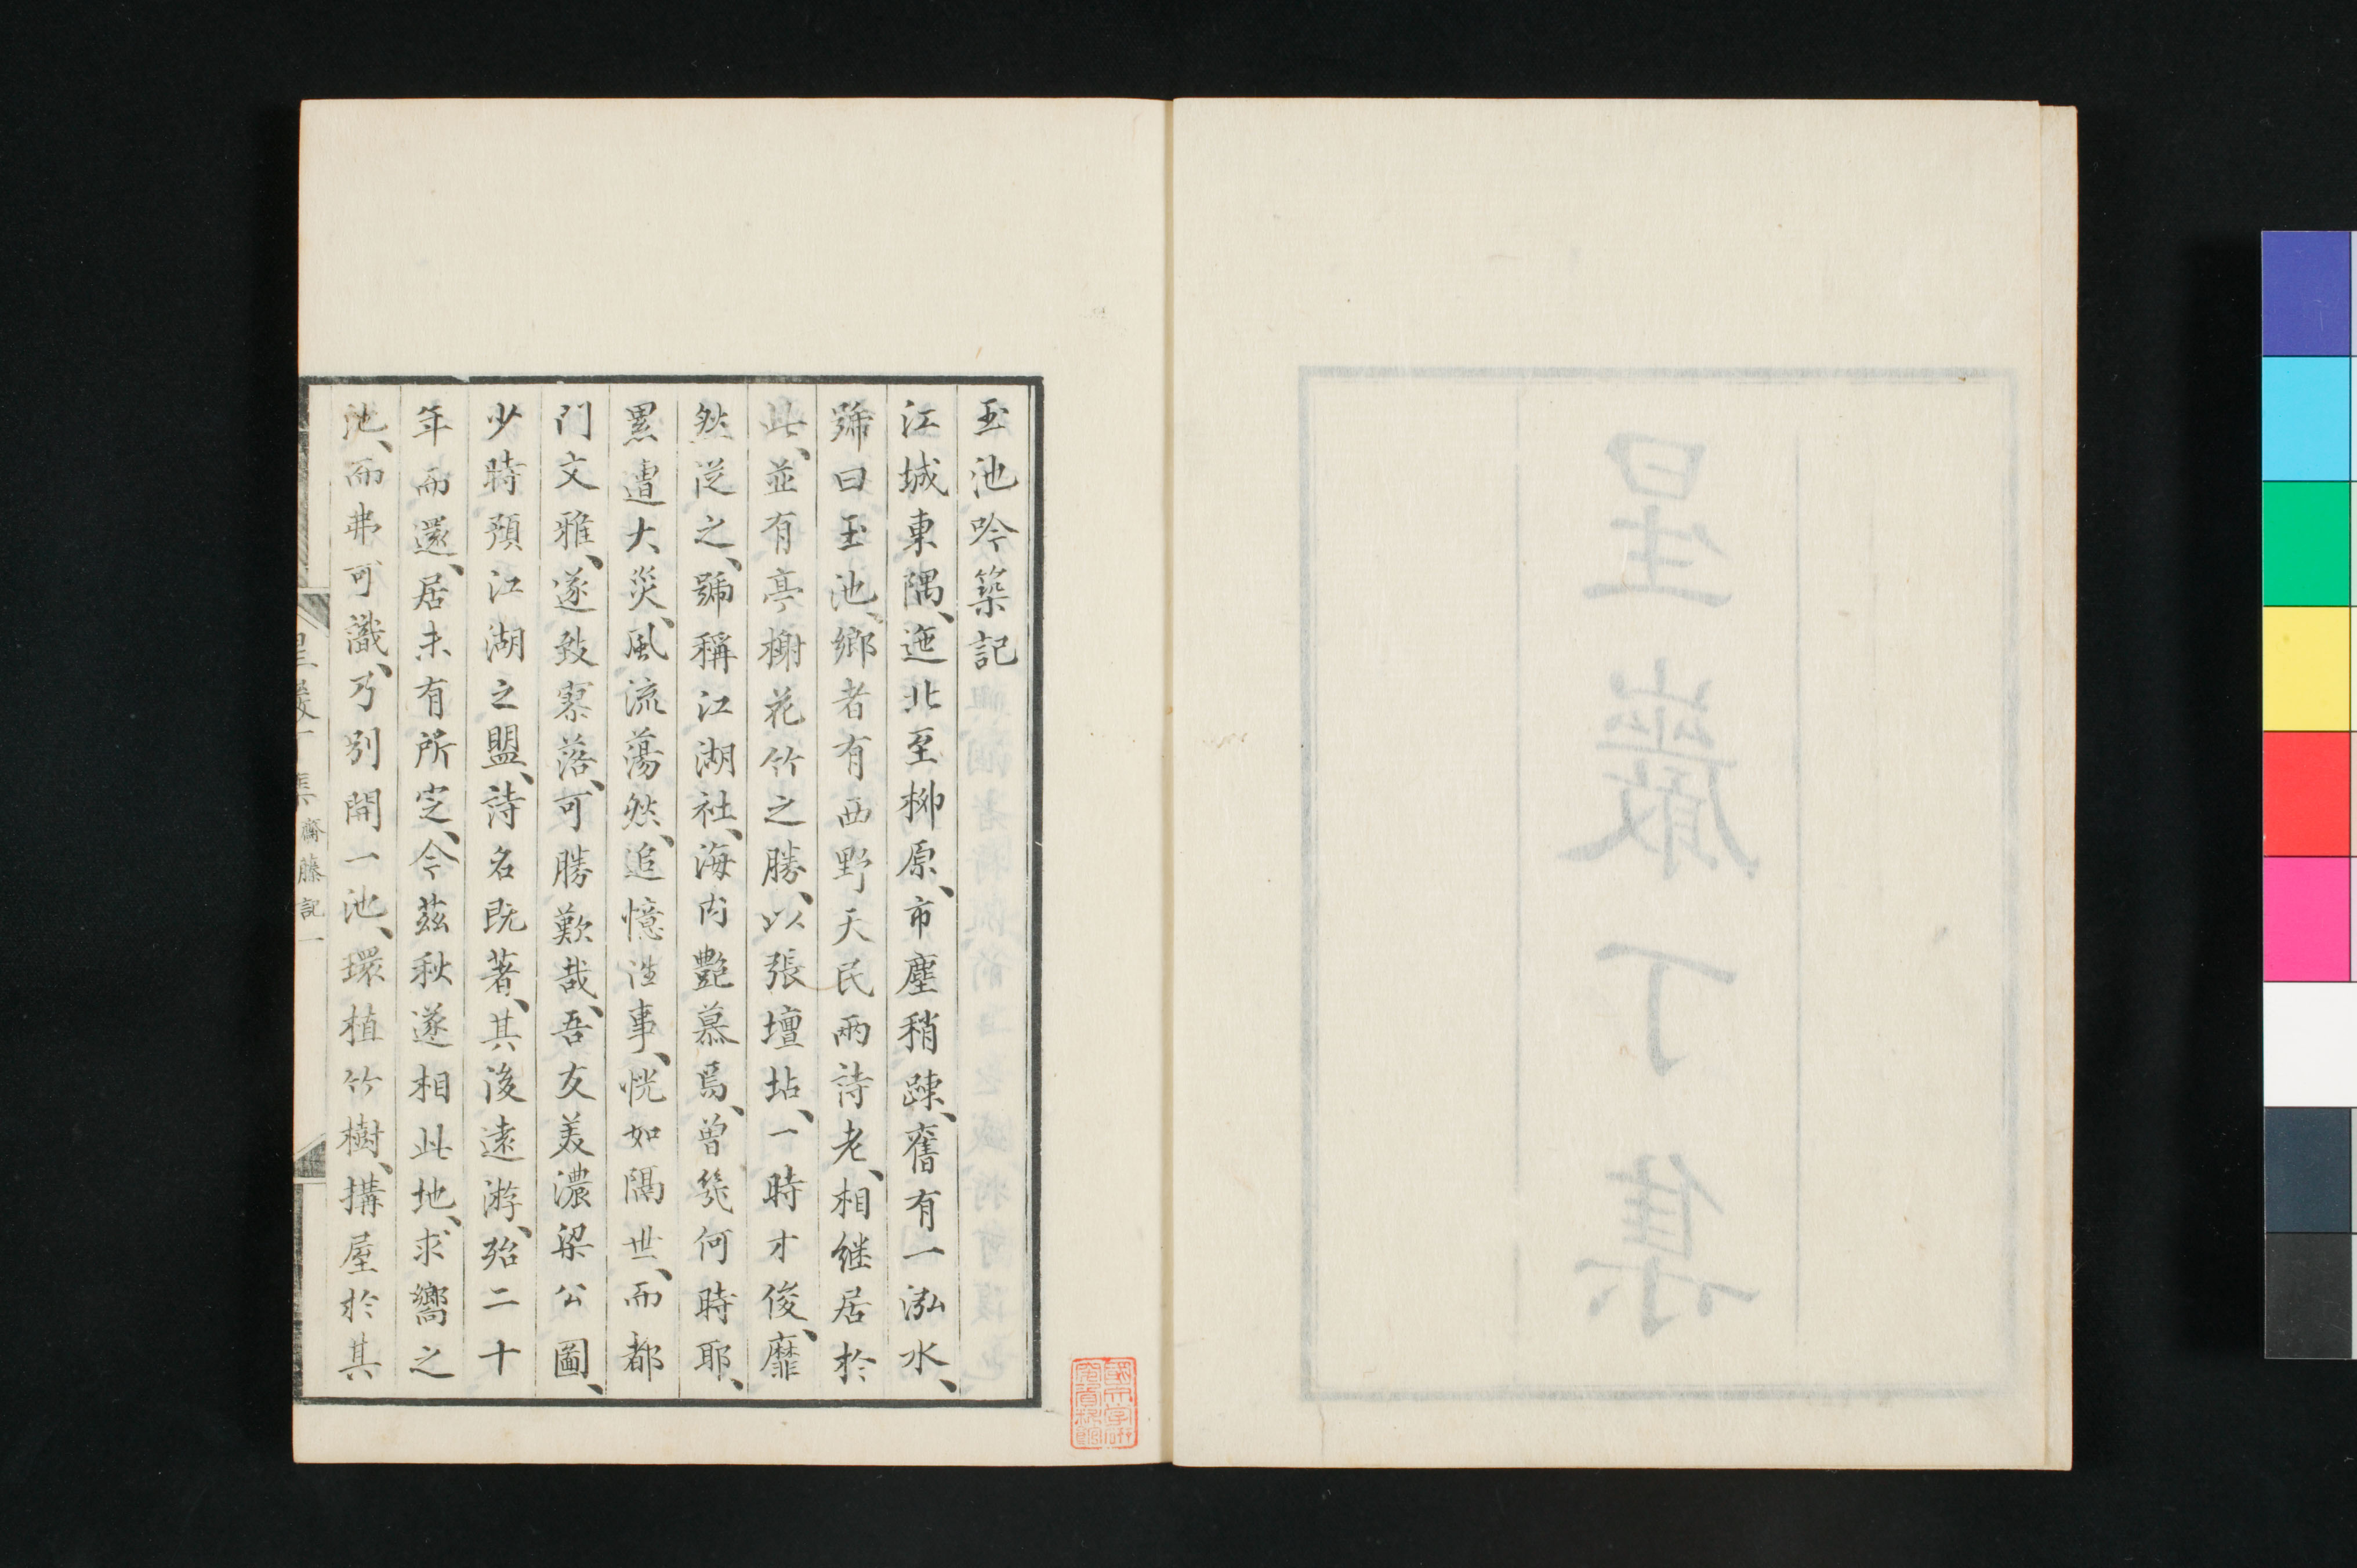 玉池吟築記
江城東隅、迤北至柳原、市塵稍踈、舊有一泓水、
號曰玉池、鄉者有西野天民兩詩老、相継居於
此、並有亭榭花竹之勝、以張壇坫、一時才俊、靡
然從之、號稱江湖社、海内艶慕焉、曾幾何時耶、
累遭大災、風流蕩然、追憶往事、恍如隔世、而都
門文雅、遂致寥落、可勝歎哉、吾友美濃梁公圖、
少時預江湖之盟、詩名既著、其後遠游、殆二十
年而還、居未有所定、今茲秋遂相此地、求嚮之
池、而弗可識、乃別開一池、環植竹樹、搆屋於其
星巖丁集 齋藤記 一
星巖丁集